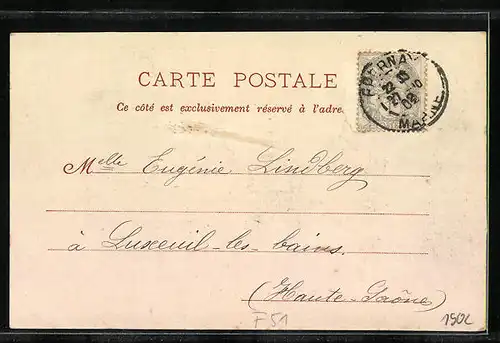 CARTE POSTALE
Ce côté est exclusivement réservé à l'adre.
EPERNAY
MARNE
Melle Eugénie Lindberg
à Luxeuil-les-bains.
(Haute-Saône)
F51
190L